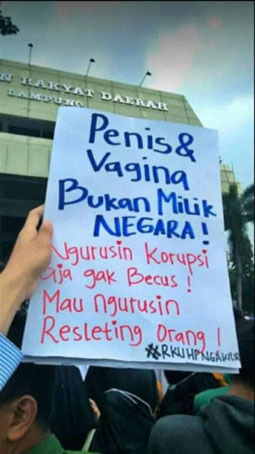 N RAKYAT DAERAH
LAMPUNG
Penis &
Vagina
Bukan Milik
NEGARA !
Ngurusin Korupsi
aja gak Becus !
Mau ngurusin
Resleting Orang !